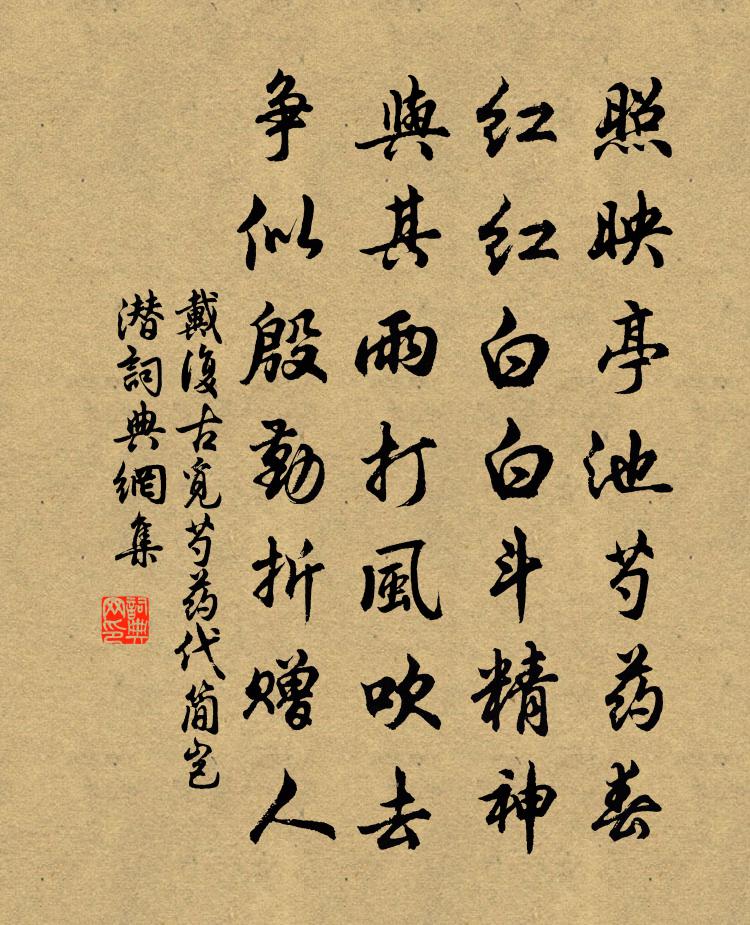 照映亭池芍药春
红红白白斗精神
與其雨打風吹去
争似殷勤折赠人
戴復古覓芍药代簡岂
潜詞典網集
詞典网印